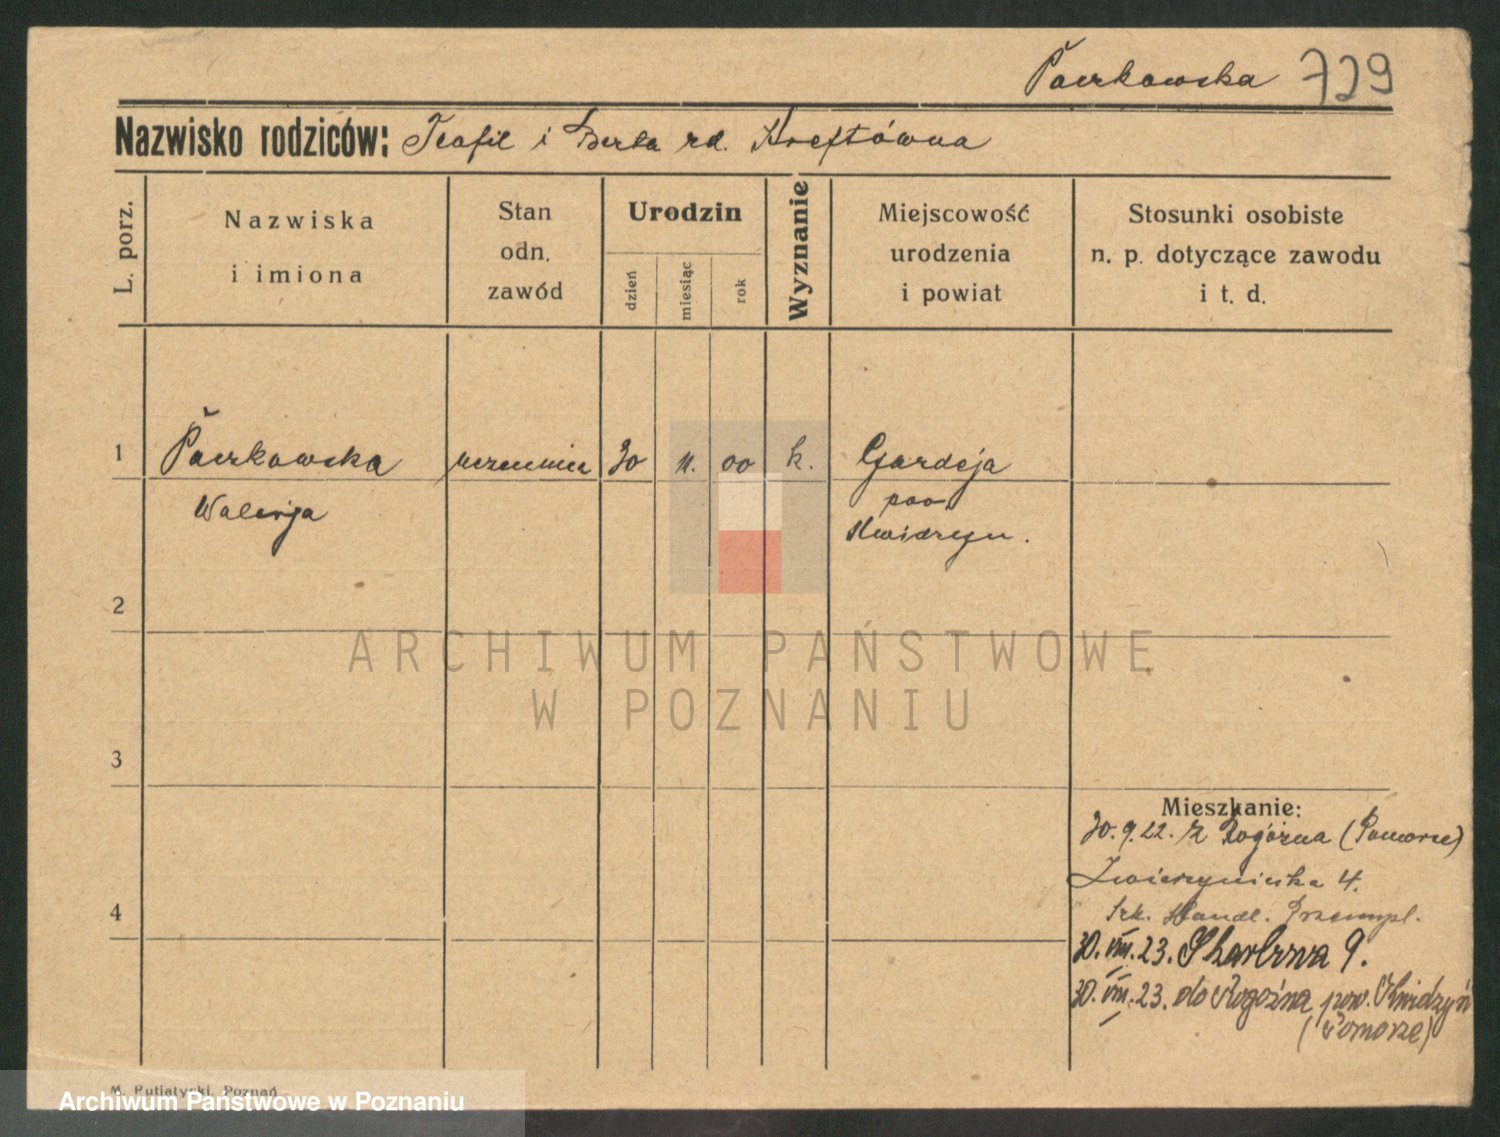 Paczkowska 729
Nazwisko rodziców: Teofil i Berta rd. Kreftówna
L. porz.
Nazwiska
i imiona
Stan
odn.
zawód
Urodzin
dzień
miesiąc
rok
Wyznanie
Miejscowość
urodzenia
i powiat
Stosunki osobiste
n. p. dotyczące zawodu
i t. d.
1 Paczkowska uczennica 30 11. 00 k. Gardeja
Walerja pow.
Kwidzyn.
2
3
4
Mieszkanie:
30. 9. 22. z Rogóźna (Pomorze)
Zwierzyniecka 4.
Szk. Handl. Przemysł.
30. VIII. 23. Skarbowa 9.
30. VIII. 23. do Rogoźna pow. Kwidzyń
(Pomorze)
M. Putiatycki, Poznań
ARCHIWUM PAŃSTWOWE
W POZNANIU
Archiwum Państwowe w Poznaniu